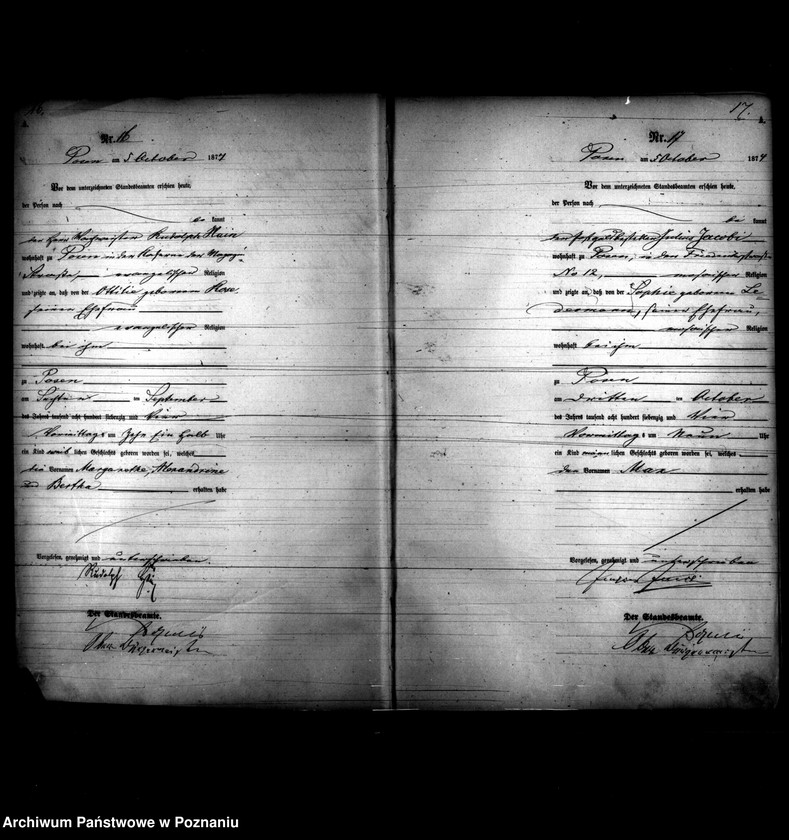 16.
A.
Nr. 16
Posen am 5 October 1874
Vor dem unterzeichneten Standesbeamten erschien heute,
der Person nach
be kannt
der Herr Wachtmeister Rudolph Hain
wohnhaft zu Posen in der Kaserne der
evangelischer Religion
und zeigte an, daß von der Ottilie geborenen
seiner Ehefrau
evangelischer Religion
wohnhaft bei ihm
zu Posen
am ten September
des Jahres tausend acht hundert siebenzig und vier
Vormittags um Zehn ein halb Uhr
ein Kind weib lichen Geschlechts geboren worden sei, welches
die Vornamen Margarethe, Alexandrine
und Bertha
erhalten habe
Vorgelesen, genehmigt und unterschrieben.
Rudolph
Der Standesbeamte.
Ober Bürgermeister
17.
A.
Nr. 17
Posen am 5 October 1874
Vor dem unterzeichneten Standesbeamten erschien heute,
der Person nach
be kannt
der Julius Jacobi
wohnhaft zu Posen, in der Friedrichstraße
No 12, mosaischer Religion
und zeigte an, daß von der Sophie geborenen Le-
dermann, seiner Ehefrau,
mosaischer Religion
wohnhaft bei ihm
zu Posen
am dritten October
des Jahres tausend acht hundert siebenzig und Vier
Vormittags um Neun Uhr
ein Kind männ lichen Geschlechts geboren worden sei, welches
den Vornamen Max
erhalten habe
Vorgelesen, genehmigt und unterschrieben
Der Standesbeamte.
Ober Bürgermeister
Archiwum Państwowe w Poznaniu